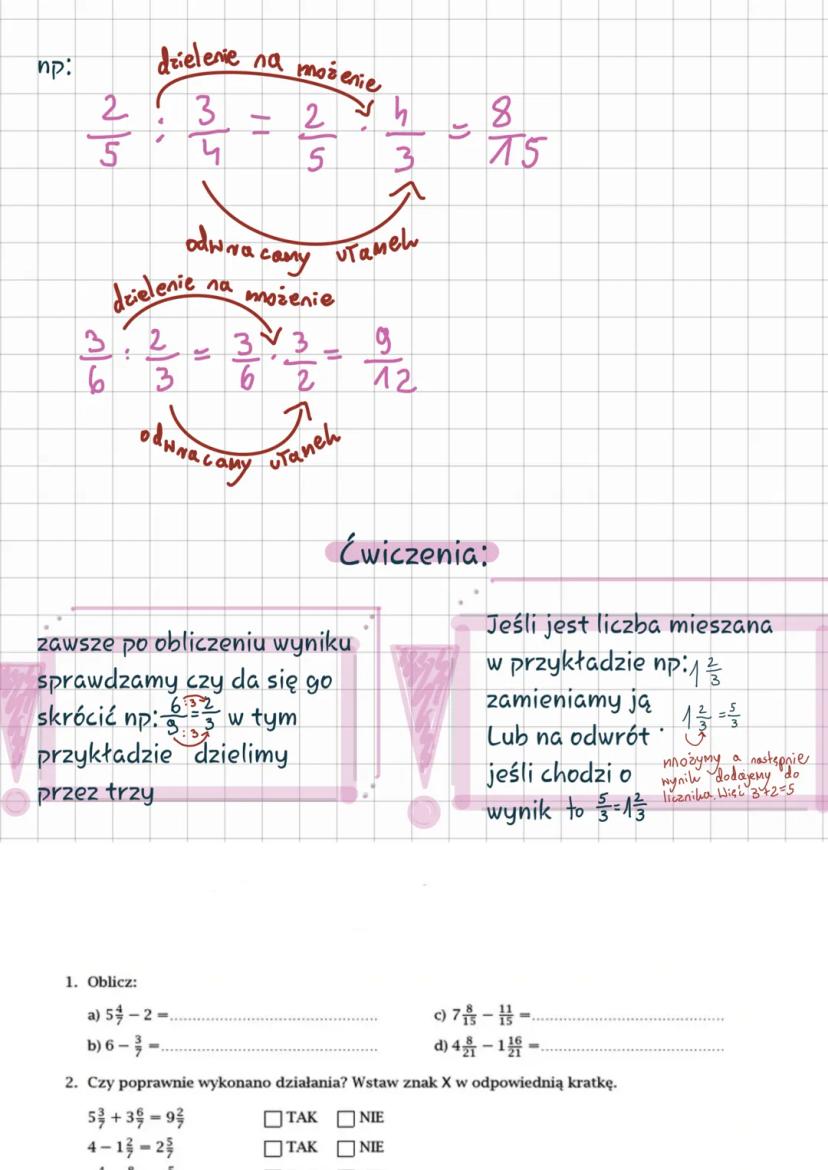 np:
dzielenie na możenie
2/5 : 3/4 = 2/5 · 4/3 = 8/15
odwracamy ułamek
dzielenie na możenie
3/6 : 2/3 = 3/6 · 3/2 = 9/12
odwracamy ułamek
Ćwiczenia:
zawsze po obliczeniu wyniku
sprawdzamy czy da się go
skrócić np: 6/9 = 2/3 w tym
:3
:3
przykładzie dzielimy
przez trzy
Jeśli jest liczba mieszana
w przykładzie np: 1 2/3
zamieniamy ją
1 2/3 = 5/3
Lub na odwrót
jeśli chodzi o
wynik to 5/3 = 1 2/3
mnożymy a następnie
wynik dodajemy do
licznika. Więc 3+2=5
1. Oblicz:
a) 5 4/7 − 2 = ..........
c) 7 8/15 − 11/15 = ..........
b) 6 − 3/7 = ..........
d) 4 8/21 − 1 16/21 = ..........
2. Czy poprawnie wykonano działania? Wstaw znak X w odpowiednią kratkę.
5 3/7 + 3 6/7 = 9 2/7 □ TAK □ NIE
4 − 1 2/7 = 2 5/7 □ TAK □ NIE